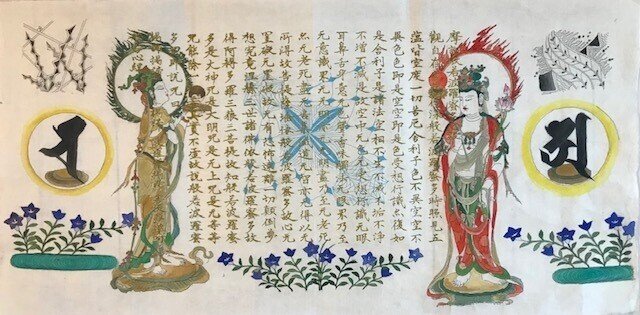 摩訶
觀自在菩薩行深般若波羅蜜多時照見五
蘊皆空度一切苦厄舍利子色不異空空不
異色色即是空空即是色受想行識亦復如
是舍利子是諸法空相不生不滅不垢不淨
不増不減是故空中无色无受想行識无眼
耳鼻舌身意无色聲香味觸法无眼界乃至
无意識界无无明亦无无明盡乃至无老死
亦无老死盡无苦集滅道无智亦无得以无
所得故菩提薩埵依般若波羅蜜多故心无
罣礙无罣礙故无有恐怖遠離一切顛倒夢
想究竟涅槃三世諸佛依般若波羅蜜多故
得阿耨多羅三藐三菩提故知般若波羅蜜
多是大神呪是大明呪是无上呪是无等等
呪能除一切苦真實不虚故説般若波羅蜜
多呪即説呪曰
心経